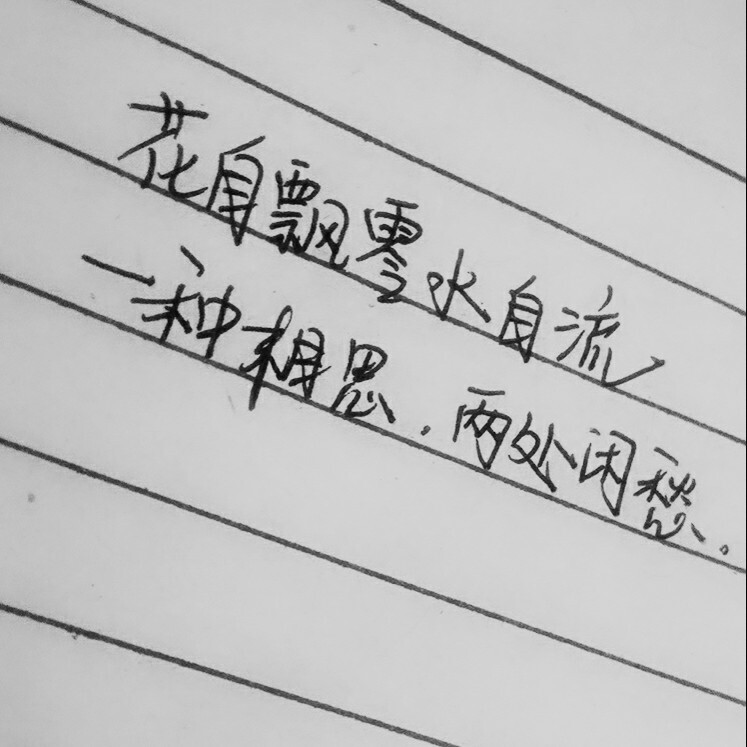 花自飘零水自流
一种相思，两处闲愁。